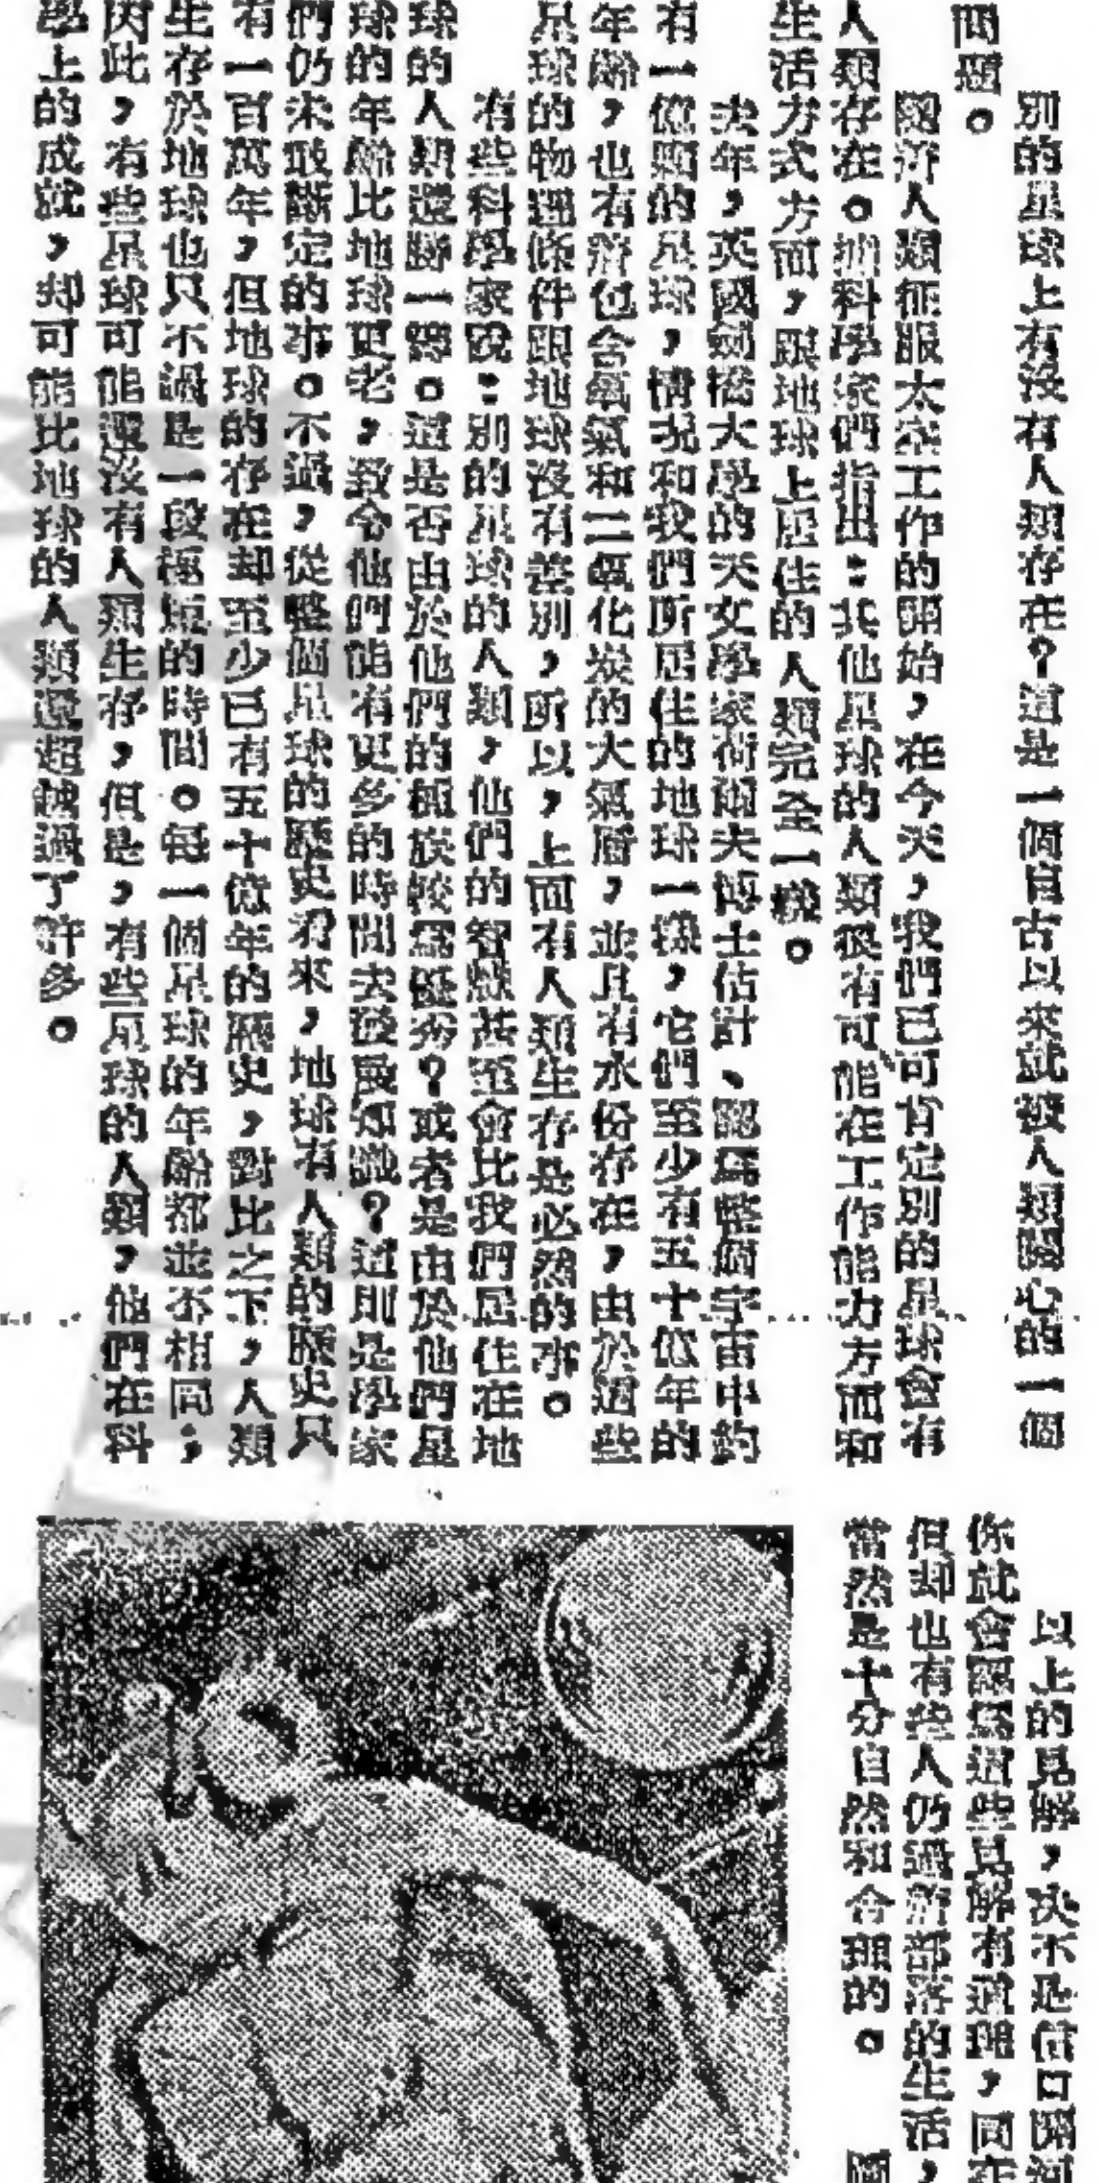 別的星球上有沒有人類存在？這是一個自古以來就被人類關心的一個
問題。
隨着人類征服太空工作的開始，在今天，我們已可肯定別的星球會有
人類存在。據科學家們指出：其他星球的人類很有可能在工作能力方面和
生活方式方面，跟地球上居住的人類完全一樣。
去年，英國劍橋大學的天文學家荷爾夫博士估計、認爲整個宇宙中約
有一億顆的星球，情况和我們所居住的地球一樣，它們至少有五十億年的
年齡，也有着包含氧氣和二氧化炭的大氣層，並且有水份存在，由於這些
星球的物理條件跟地球沒有差別，所以，上面有人類生存是必然的事。
有些科學家說：別的星球的人類，他們的智慧甚至會比我們居住在地
球的人類還勝一籌。這是否由於他們的種族較爲優秀？或者是由於他們星
球的年齡比地球更老，致令他們能有更多的時間去發展知識？這則是學家
們仍未敢斷定的事。不過，從整個星球的歷史看來，地球有人類的歷史只
有一百萬年，但地球的存在却至少已有五十億年的歷史，對比之下，人類
生存於地球也只不過是一段極短的時間。每一個星球的年齡都並不相同；
因此，有些星球可能還沒有人類生存，但是，有些星球的人類，他們在科
學上的成就，却可能比地球的人類還超越過了許多。
以上的見解，决不是信口開河
你就會認爲這些見解有道理，同在
但却也有些人仍過着部落的生活，
當然是十分自然和合理的。